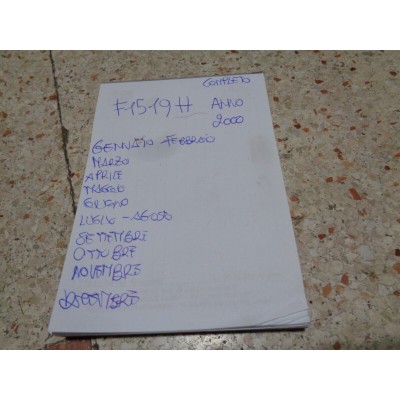 COMPLETO
F15-19 H ANNO
2000
GENNAIO - FEBBRAIO
MARZO
APRILE
MAGGIO
GIUGNO
LUGLIO - AGOSTO
SETTEMBRE
OTTOBRE
NOVEMBRE
DICEMBRE